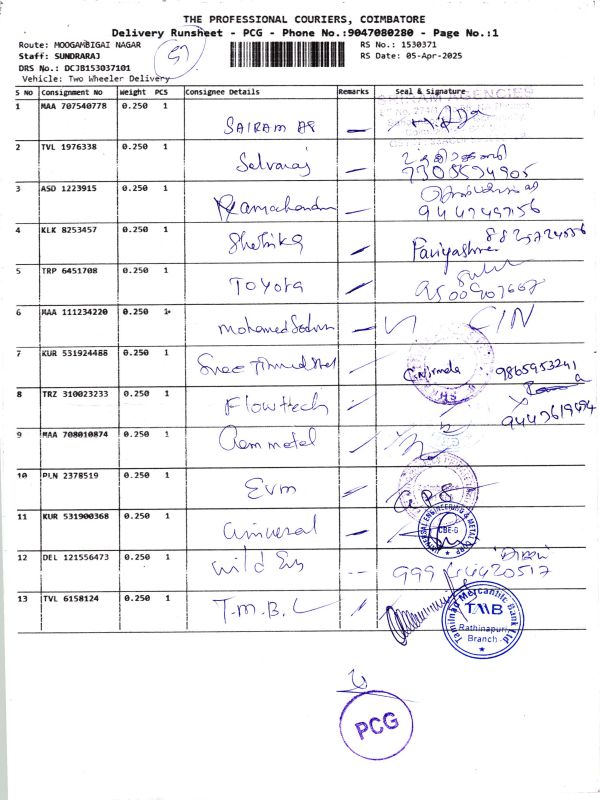 THE PROFESSIONAL COURIERS, COIMBATORE
Delivery Runsheet - PCG - Phone No.:9047080280 - Page No.:1
Route: MOOGAMBIGAI NAGAR
RS No.: 1530371
Staff: SUNDRARAJ
RS Date: 05-Apr-2025
DRS No.: DCJB153037101
Vehicle: Two Wheeler Delivery
S NO Consignment No Weight PCS Consignee Details Remarks Seal & Signature
1 MAA 707540778 0.250 1
SAIRAM
2 TVL 1976338 0.250 1
Selvaraj
3 ASD 1223915 0.250 1
Ramachandran
4 KLK 8253457 0.250 1
5 TRP 6451708 0.250 1
Toyota
6 MAA 111234220 0.250 1
Mohamed
7 KUR 531924488 0.250 1
Nirmala 9865953241
8 TRZ 310023233 0.250 1
Flowtech
9443619694
9 MAA 708010874 0.250 1
Aemmetal
10 PLN 2378519 0.250 1
Evm
11 KUR 531900368 0.250 1
universal
UNIVERSAL ENGINEERING & METAL CORP
CBE-6
12 DEL 121556473 0.250 1
13 TVL 6158124 0.250 1
T.M.B.L
Tamilnad Mercantile Bank Ltd
TMB
Rathinapuri
Branch
PCG